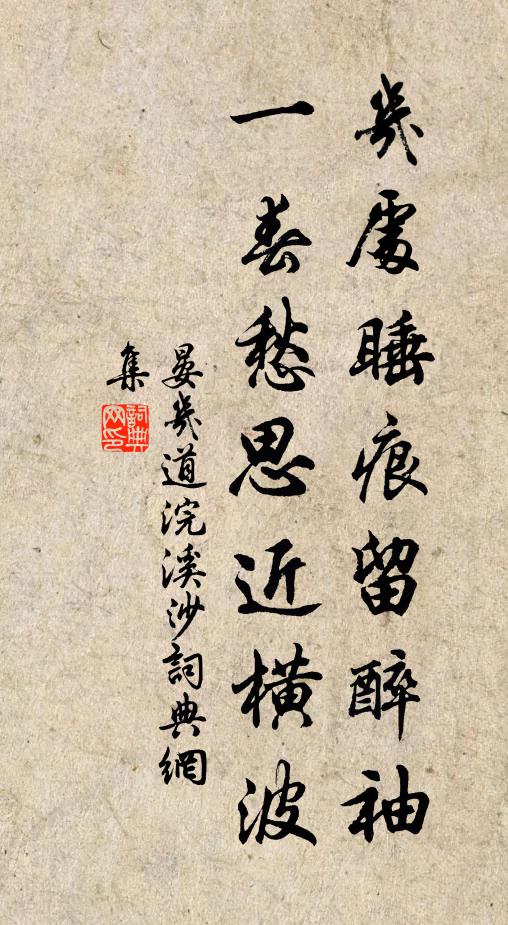 幾處睡痕留醉袖
一春愁思近橫波
晏幾道浣溪沙詞典網
集
詞典網印